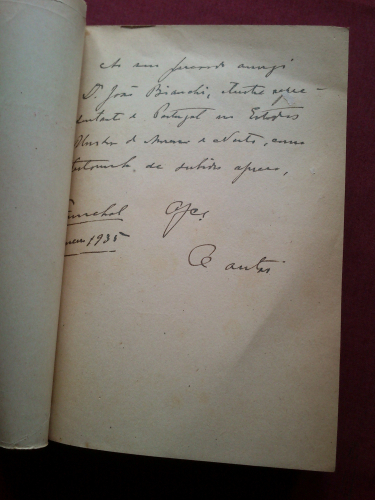 Ao meu querido amigo
Dr. João Bianchi, ilustre repre-
sentante de Portugal nos Estados
Unidos da America do Norte, como
testemunho de subido apreço,
Funchal
1935
Ofce
Dantas